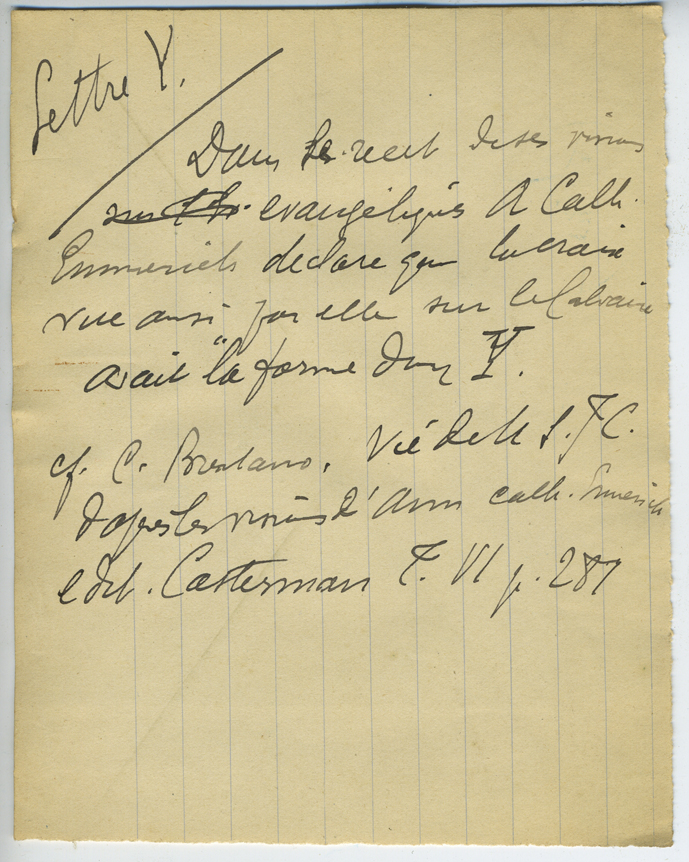 Lettre Y.
Dans le recit de ses visions
evangeliques A Cath.
Emmerich declare que la croix
vue ainsi par elle sur le Calvaire
avait "la forme d'un Y.
cf. C. Brentano. Vie de N S. J C.
d'apres les visions d'Ann cath. Emerich
edit. Casterman T. VI p. 287